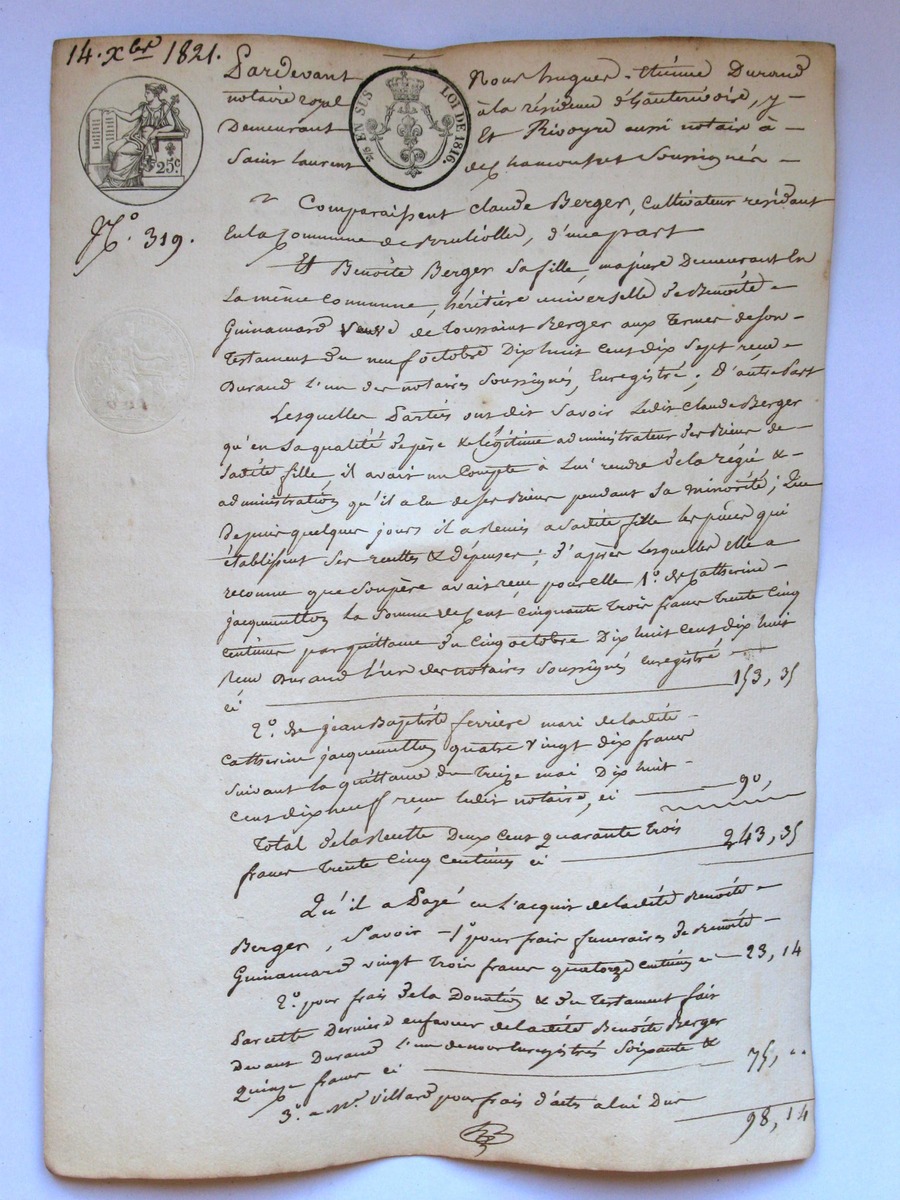 14. Xbre 1821.
Pardevant Nous hugues-Etienne Durand
notaire royal à la résidence d'hauterivoire, y
Demeurant Et Rivoyre aussi notaire à
Saint Laurent de chamousset Soussignés
25c
5/10 EN SUS LOI DE 1816.
N.o 319.
Comparaissent Claude Berger, Cultivateur résidant
En la Commune de Brullioles, d'une part
Et Benoîte Berger sa fille, majeure Demeurant En
La même Commune, héritière universelle de Benoîte
Guinamard Veuve de toussaint Berger aux termes de son
Testament du neuf octobre Dix huit cent dix Sept reçu
Durand L'un des notaires Soussignés, Enregistré; D'autre Part
Lesquelles Parties ont dit Savoir Ledit Claude Berger
qu'en sa qualité de père & légitime administrateur des Biens de
Sadite fille, il avait un Compte à Lui rendre de la régie &
administration qu'il a Eu de ses Biens pendant sa minorité; Que
Depuis quelques jours il a remis a sadite fille les pièces qui
établissent ses recettes & dépenses; d'après Lesquelles elle a
reconnu que Son père avait reçu pour elle 1.o de Catherine
jacquemetton La Somme de Cent Cinquante trois francs Trente Cinq
Centimes par quittance du Cinq octobre Dix huit cent dix huit
reçu Durand L'un des notaires Soussignés Enregistré
ci 153, 35
2.o de jean Baptiste ferriere mari de ladite
Catherine jacquemetton quatre vingt dix francs
Suivant la quittance du Treize mai Dix huit
Cent dix neuf reçu ledit notaire, ci 90,
Total de la Recette Deux cent quarante trois
francs Trente Cinq Centimes ci 243, 35
Qu'il a Payé en l'acquit de ladite Benoîte
Berger, Savoir 1.o pour frais funeraires de Benoîte
Guinamard vingt trois francs quatorze centimes ci 23, 14
2.o pour frais de la Donation & du Testament fait
Par cette Dernière en faveur de ladite Benoîte Berger
Devant Durand L'un de nous Enregistrés Soixante &
Quinze francs ci 75, ..
3.o a Mr. Villard pour frais d'acts a lui Dus
98, 14